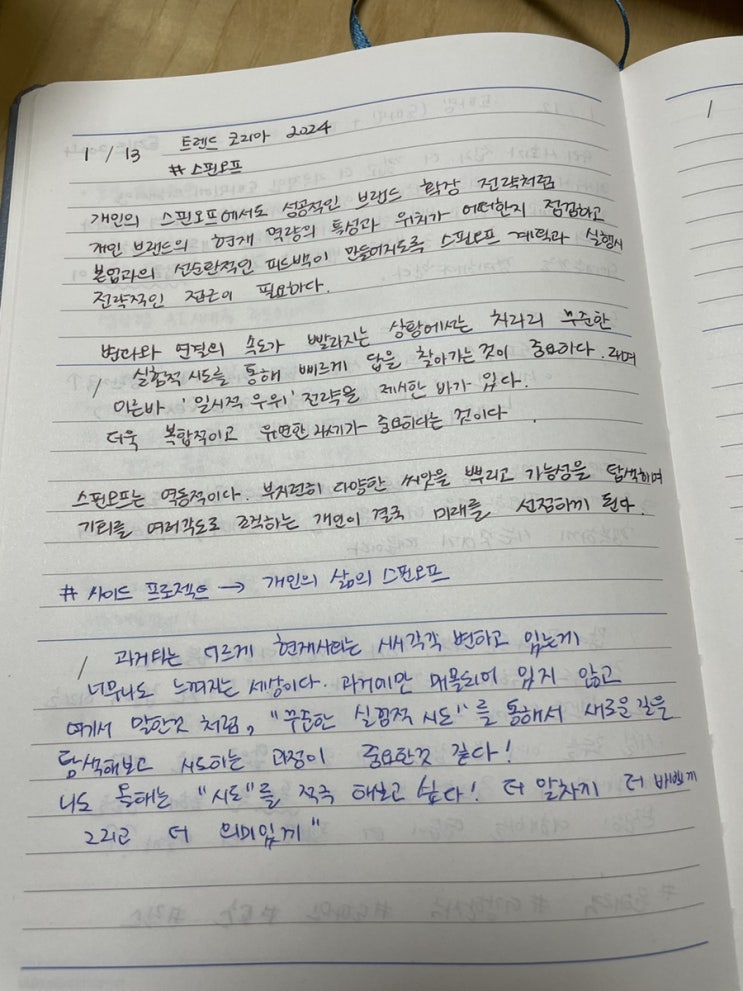 1 / 13 트렌드 코리아 2024
# 스핀오프
개인의 스핀오프에서도 성공적인 브랜드 확장 전략처럼
개인 브랜드의 현재 역량의 특성과 위치가 어떠한지 점검하고
본업과의 선순환적인 피드백이 만들어지도록 스핀오프 계획과 실행시
전략적인 접근이 필요하다.
변화와 연결의 속도가 빨라지는 상황에서는 차라리 꾸준한
실험적 시도를 통해 빠르게 답을 찾아가는 것이 중요하다. 라며
이른바 '일시적 우위' 전략을 제시한 바가 있다.
더욱 복합적이고 유연한 자세가 중요하다는 것이다.
스핀오프는 역동적이다. 부지런히 다양한 씨앗을 뿌리고 가능성을 탐색하며
기회를 여러각도로 포착하는 개인이 결국 미래를 선점하게 된다.
# 사이드 프로젝트 → 개인의 삶의 스핀오프
과거와는 다르게 현재사회는 시시각각 변하고 있는게
너무나도 느껴지는 세상이다. 과거에만 매몰되어 있지 않고
여기서 말한것 처럼, "꾸준한 실험적 시도"를 통해서 새로운 길을
탐색해보고 시도하는 과정이 중요한것 같다!
나도 올해는 "시도"를 적극 해보고 싶다! 더 알차게 더 바쁘게
그리고 더 의미있게"